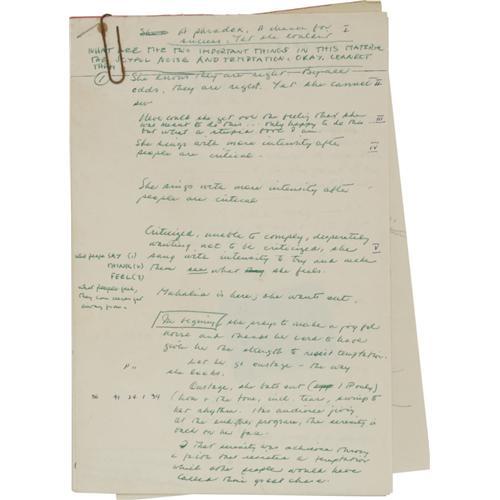 A paradox, A chance for I
success, Yet she couldn't
WHAT ARE THE TWO IMPORTANT THINGS IN THIS MATERIAL
THE JOYFUL NOISE AND TEMPTATION. OKAY, CONNECT
THEM
① She knows they are right — By all
odds, they are right. Yet she cannot II
see
Never could she get over the feeling that she III
was meant to do this... only happy to do this
but what a stupid I am.
She sings with more intensity after IV
people are critical.
She sings with more intensity after
people are critical
Criticized, unable to comply, desperately
wanting not to be criticized, she V
what people SAY (1) sang with intensity to try and make
THINK(2) them see what she feels.
FEEL(3)
what people feel,
they can never get
away from.
Mahalia is here; she wants out.
In beginning she prays to make a joyful
noise and thanks the Lord to have
give her the strength to resist temptation.
Let her go onstage — the way
she looks.
Onstage, she bats out (1 only)
36 41 24.1 34 (how & the tone, incl. tears, swings to
her rhythm. Has audience joining
at the end program, the serenity is
back on her face.
That serenity was achieve through
a faith that resisted a temptation
which other people would have
called their great chance.